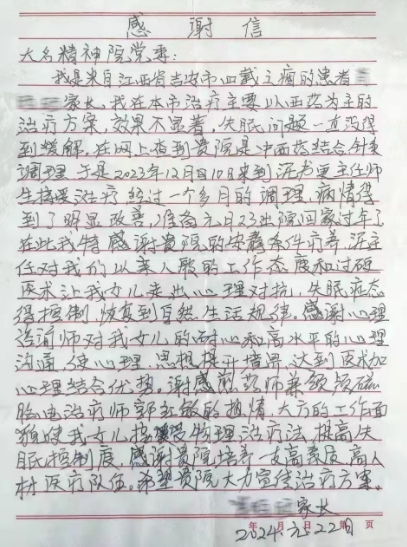 感谢信
大名精神院党委:
我是来自江西省吉安市 患者
家长,我在本市治疗主要以西药为主的
治疗方案,效果不显著,失眠问题一直没得
到缓解,在网上查到贵院是中西药结合针灸
调理,于是2023年12月10日来到 主任师
生接受治疗 经过一个多月的调理,病情得
到了明显改善,准备元月23出院回家过年了
在此我特感谢贵院的 条件疗养,
任对我们以亲人般的工作态度和过硬
医术让我女儿走出心理对抗,失眠症状
得控制,恢复到自然生活规律,感谢心理
咨询师对我女儿的 心和高水平的心理
沟通,使心理、思想提升境界,达到医术加
心理结合优势,谢感 师兼 磁
治疗师郭 敏的热情,大方的工作面
我女儿接受物理治疗法,提高失
眠控制度,感谢贵院培养一支高素质,高人
材医疗队伍。希望贵院大力宣传治疗方案。
家长
2024.元.22日
年 月 日 第 页